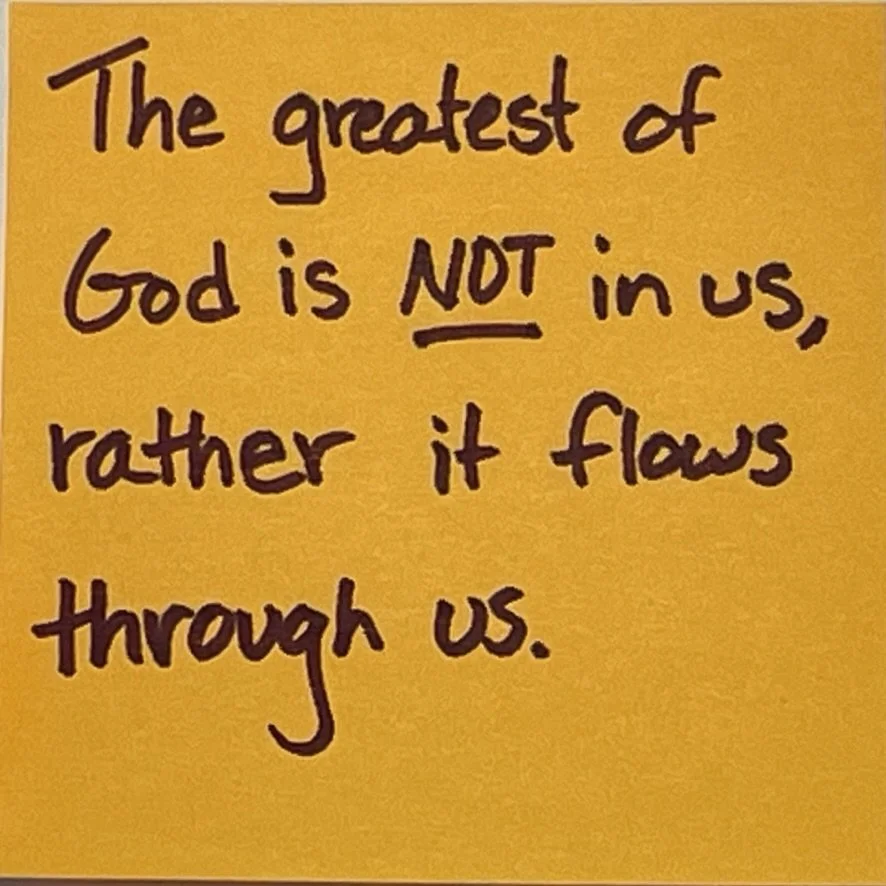 The greatest of
God is NOT in us,
rather it flows
through us.